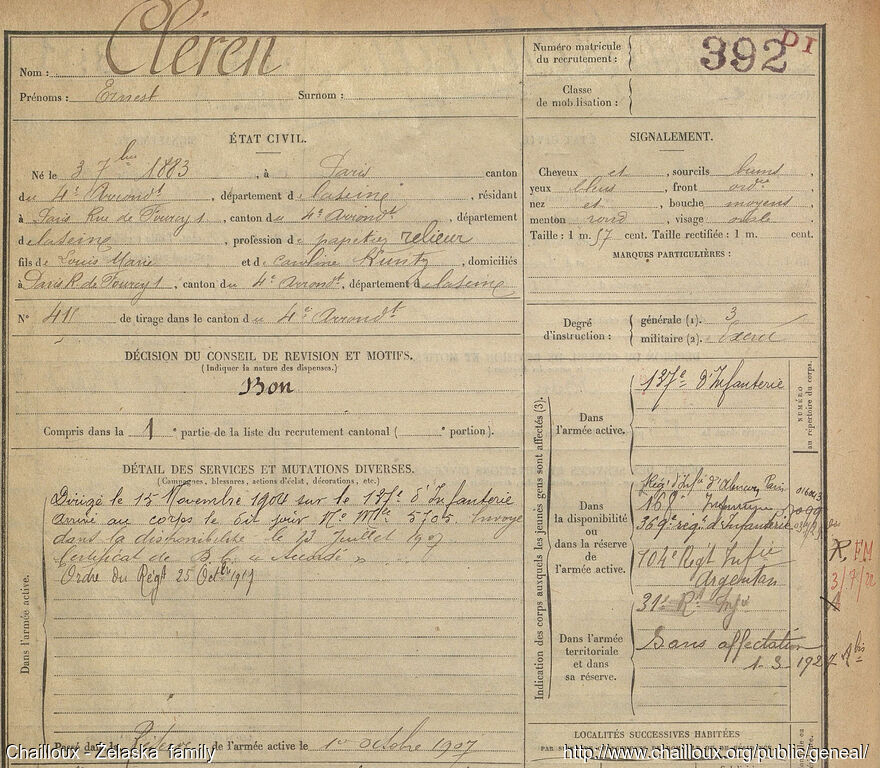 Nom : Cléren
Prénoms : Ernest Surnom :
ÉTAT CIVIL.
Né le 3 7bre 1883, à Paris canton
du 4e Arrondt, département de la Seine, résidant
à Paris Rue de Fourcy 1, canton du 4e Arrondt, département
de la Seine, profession de papetier relieur
fils de Louis Marie et de Caroline Kuntz, domiciliés
à Paris R. de Fourcy 1, canton du 4e Arrondt, département de la Seine
N° 411 de tirage dans le canton du 4e Arrondt
DÉCISION DU CONSEIL DE REVISION ET MOTIFS.
(Indiquer la nature des dispenses.)
Bon
Compris dans la 1e partie de la liste du recrutement cantonal ( e portion).
DÉTAIL DES SERVICES ET MUTATIONS DIVERSES.
(Campagnes, blessures, actions d'éclat, décorations, etc.)
Dans l'armée active.
Dirigé le 15 Novembre 1904 sur le 137e d'Infanterie
arrivé au corps le dit jour No Mle 5705. Envoyé
dans la disponibilité le 13 Juillet 1907
Certificat de B. C. " Accordé "
Ordre du Régt 25 Octbre 1917
Passé dans la Réserve de l'armée active le 1er octobre 1907
Numéro matricule
du recrutement : 392
DI
Classe
de mobilisation :
SIGNALEMENT.
Cheveux et, sourcils bruns
yeux bleus, front ordre
nez et, bouche moyens
menton rond, visage ovale
Taille : 1 m. 57 cent. Taille rectifiée : 1 m. cent.
MARQUES PARTICULIÈRES :
Degré
d'instruction :
générale (1). 3
militaire (2). Exercé
Indication des corps auxquels les jeunes gens sont affectés (3).
NUMÉRO
au répertoire du corps.
Dans
l'armée active.
137e d'Infanterie
Dans
la disponibilité
ou
dans la réserve
de
l'armée active.
Infanterie
369e régt d'Infanterie
104e Régt Infie
Argentan
31e Rt Infie
Dans l'armée
territoriale
et dans
sa réserve.
Sans affectation
1.3.1927
FM
3/7/22
LOCALITÉS SUCCESSIVES HABITÉES
Chailloux - Zelaska family
http://www.chailloux.org/public/geneal/